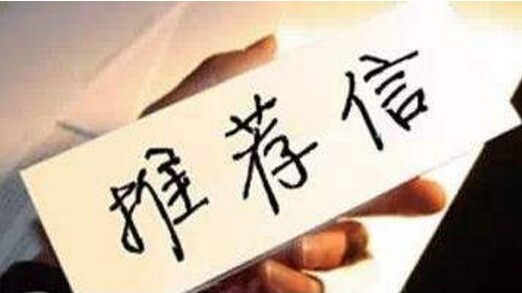 推荐信